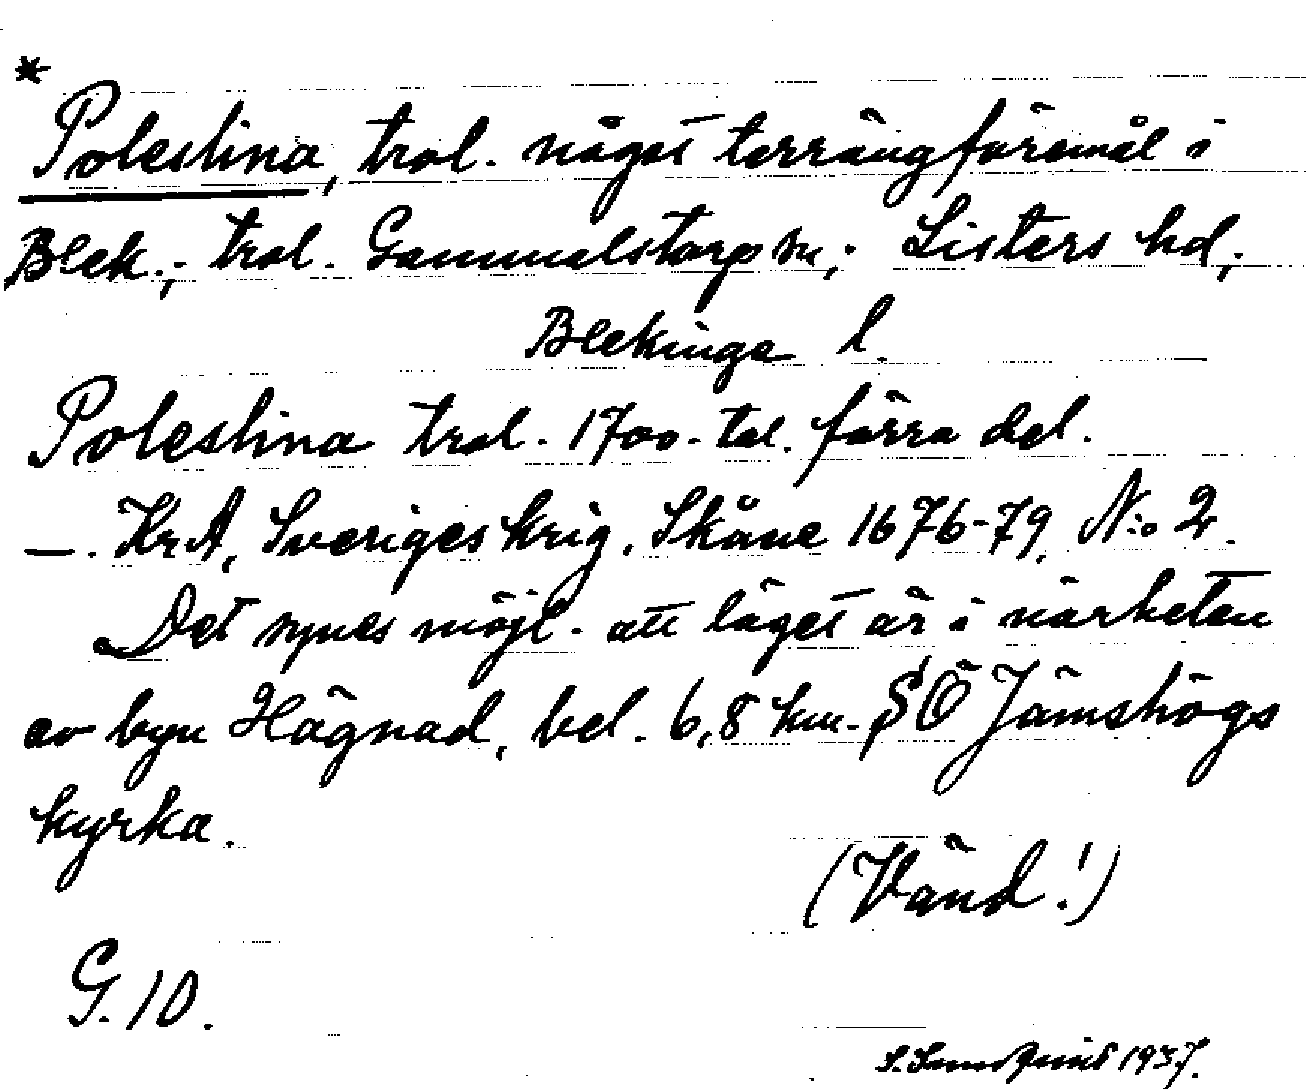 *
Polestina, trol. något terrängföremål i
Blek.; trol. Gammalstorp sn; Listers hd,
Blekinge l.
Polestina trol. 1700-tal. förra del.
—. KrA, Sveriges krig, Skåne 1676-79, N:o 2.
Det synes möjl. att läget är i närheten
av byn Hägnad, bel. 6,8 km. SÖ Jämshögs
kyrka.
(Vänd!)
G. 10.
1937.